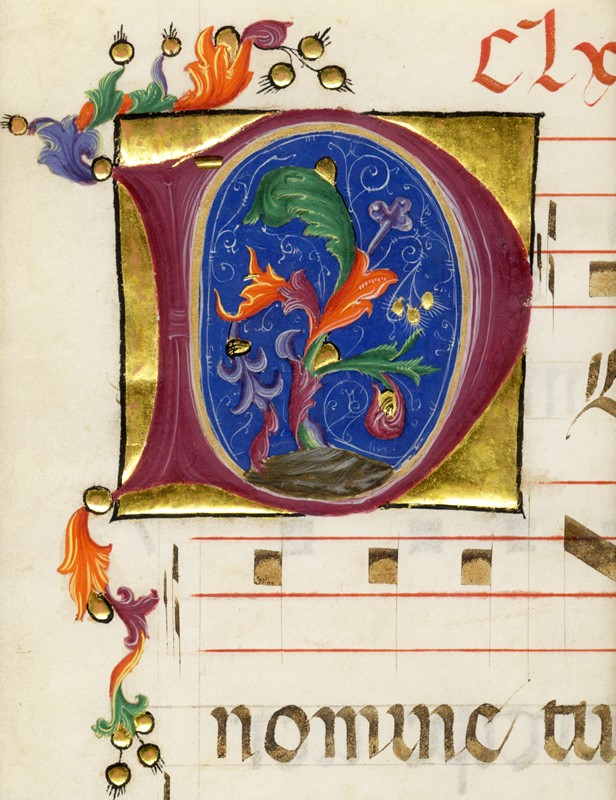 clx
D
nomine tu